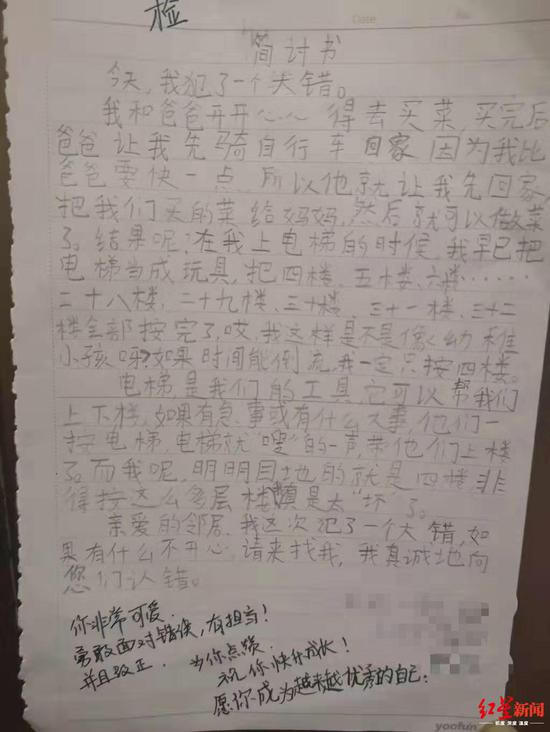 检
Date
简讨书
今天,我犯了一个大错。
我和爸爸开开心心得去买菜,买完后
爸爸让我先骑自行车回家因为我比
爸爸要快一点,所以他就让我先回家,
把我们买的菜给妈妈,然后就可以做菜
了。结果呢?在我上电梯的时候,我早已把
电梯当成玩具,把四楼、五楼、六楼……
二十八楼、二十九楼、三十楼、三十一楼、三十二
楼全部按完了,哎,我这样是不是像幼稚
小孩呀?如果时间能倒流,我一定只按四楼。
电梯,是我们的工具,它可以帮我们
上下楼,如果有急事或有什么大事,他们一
按电梯,电梯就“嗖”的一声带他们上楼
了。而我呢,明明目地的就是四楼,非
得按这么多层楼真是太“坏”了。
亲爱的邻居,我这次犯了一个大错,如
果有什么不开心,请来找我,我真诚地向
您们认错。
你非常可爱.
勇敢面对错误,有担当!
并且改正. 为你点赞.
祝你快快成长!
愿你成为越来越优秀的自己.
红星新闻
深度 温度
yoofun